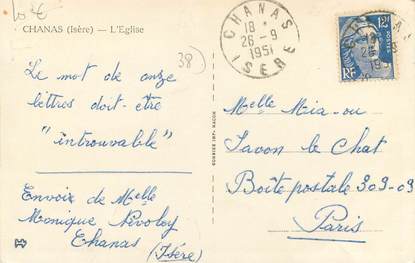 10 €
CHANAS (Isère) — L'Eglise
38)
Le mot de onze
lettres doit-être
"introuvable"
Envoie de Melle
Monique Névoloy
Chanas
(Isère)
CHANAS
18 *
26-9
1951
ISERE
12F
POSTES
RF
COURRIER IMP. MACON
Melle Mia-ou
Savon le Chat
Boîte postale 309-09
Paris